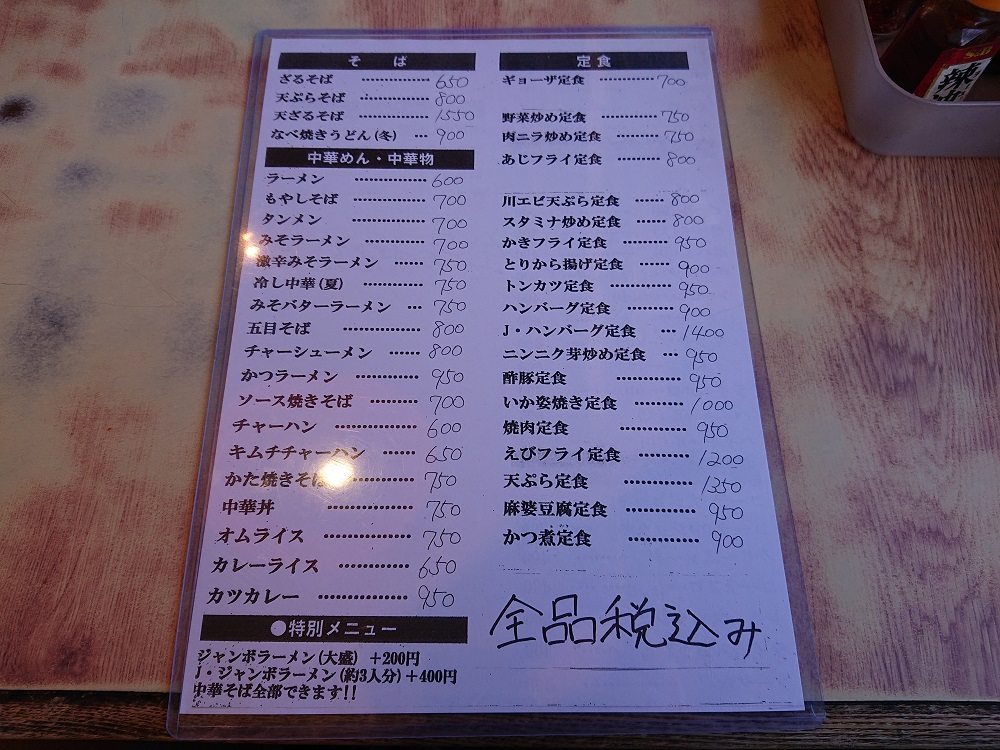 そば
ざるそば ………… 650
天ぷらそば ………… 800
天ざるそば ………… 1550
なべ焼きうどん(冬) … 900
中華めん・中華物
ラーメン ………… 600
もやしそば ………… 700
タンメン ………… 700
みそラーメン ………… 700
激辛みそラーメン …… 750
冷し中華(夏) ………… 750
みそバターラーメン … 750
五目そば ………… 800
チャーシューメン …… 800
かつラーメン ………… 950
ソース焼きそば ……… 700
チャーハン ………… 600
キムチチャーハン …… 650
かた焼きそば ……… 750
中華丼 ………… 750
オムライス ………… 750
カレーライス ………… 650
カツカレー ………… 950
●特別メニュー
ジャンボラーメン(大盛) +200円
J・ジャンボラーメン(約3人分)+400円
中華そば全部できます!!
定食
ギョーザ定食 ………… 700
野菜炒め定食 ………… 750
肉ニラ炒め定食 ……… 750
あじフライ定食 ……… 800
川エビ天ぷら定食 …… 800
スタミナ炒め定食 …… 800
かきフライ定食 ……… 950
とりから揚げ定食 …… 900
トンカツ定食 ………… 950
ハンバーグ定食 ……… 900
J・ハンバーグ定食 … 1400
ニンニク芽炒め定食 … 950
酢豚定食 ………… 950
いか姿焼き定食 ……… 1000
焼肉定食 ………… 950
えびフライ定食 ……… 1200
天ぷら定食 ………… 1350
麻婆豆腐定食 ………… 950
かつ煮定食 ………… 900
全品税込み
S&B